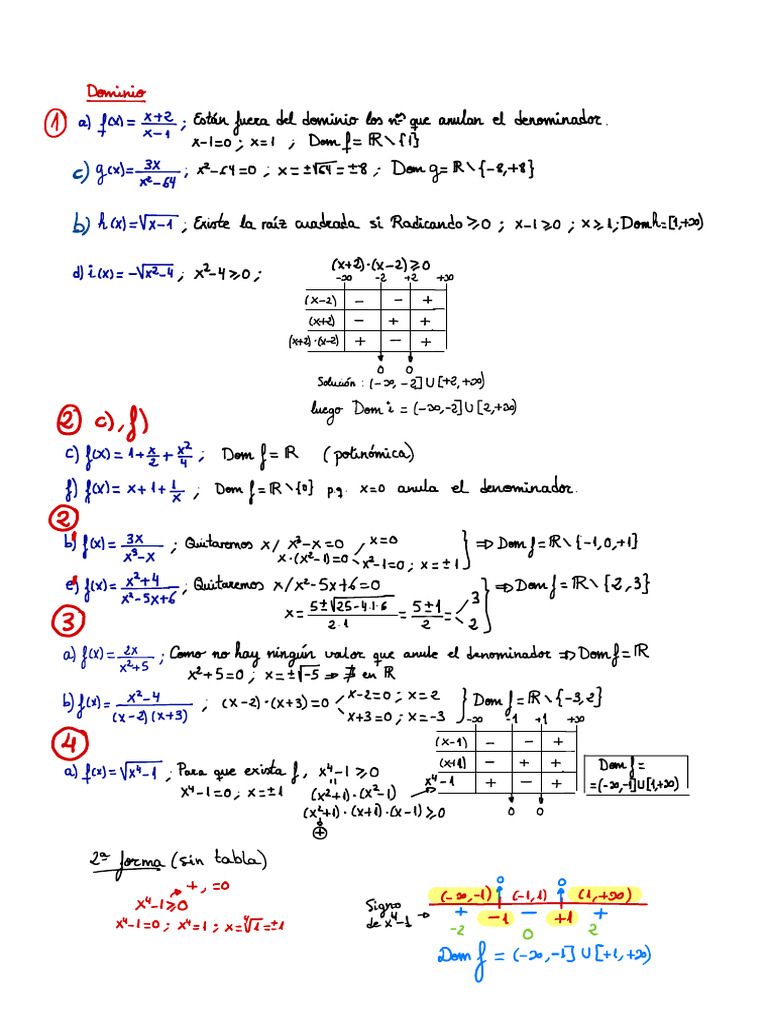 Dominio
① a) f(x) = x+2/x-1 ; Están fuera del dominio los nos que anulan el denominador.
x-1=0 ; x=1 ; Dom f = ℝ \ {1}
c) g(x) = 3x/x²-64 ; x²-64=0 ; x=±√64=±8 ; Dom g = ℝ \ {-8,+8}
b) h(x) = √x-1 ; Existe la raíz cuadrada si Radicando ≥ 0 ; x-1≥0 ; x≥1 ; Dom h = [1,+∞)
d) i(x) = -√x²-4 ; x²-4≥0 ; (x+2)·(x-2)≥0
-∞ -2 +2 +∞
(x-2) - - +
(x+2) - + +
(x+2)·(x-2) + - +
0 0
Solución : (-∞,-2] U [+2,+∞)
luego Dom i = (-∞,-2] U [2,+∞)
② c), f)
c) f(x) = 1+x/2+x²/4 ; Dom f = ℝ (polinómica)
f) f(x) = x+1+1/x ; Dom f = ℝ \ {0} p.q. x=0 anula el denominador.
②
b) f(x) = 3x/x³-x ; Quitaremos x/ x³-x=0 x=0 } ⇒ Dom f = ℝ \ {-1,0,+1}
x·(x²-1)=0 x²-1=0 ; x=±1
e) f(x) = x²+4/x²-5x+6 ; Quitaremos x/ x²-5x+6=0 } ⇒ Dom f = ℝ \ {2,3}
x = 5±√25-4·1·6/2·1 = 5±1/2 = 3 2
③
a) f(x) = 2x/x²+5 ; Como no hay ningún valor que anule el denominador ⇒ Dom f = ℝ
x²+5=0 ; x=±√-5 ⇒ ∄ en ℝ
b) f(x) = x²-4/(x-2)(x+3) ; (x-2)·(x+3)=0 x-2=0 ; x=2 } Dom f = ℝ \ {-3,2}
x+3=0 ; x=-3
④
-∞ -1 +1 +∞
(x-1) - - +
(x+1) - + +
x⁴-1 + - +
0 0
Dom f =
=(-∞,-1] U [1,+∞)
a) f(x) = √x⁴-1 ; Para que exista f, x⁴-1 ≥ 0
x⁴-1=0 ; x=±1 (x²+1)·(x²-1)
(x²+1)·(x+1)·(x-1) ≥ 0
+
2ª forma (sin tabla)
+, =0
x⁴-1≥0
x⁴-1=0 ; x⁴=1 ; x=⁴√1=±1
0 0
(-∞,-1) (-1,1) (1,+∞)
Signo de x⁴-1 → + -1 - +1 +
-2 0 2
Dom f = (-∞,-1] U [+1,+∞)